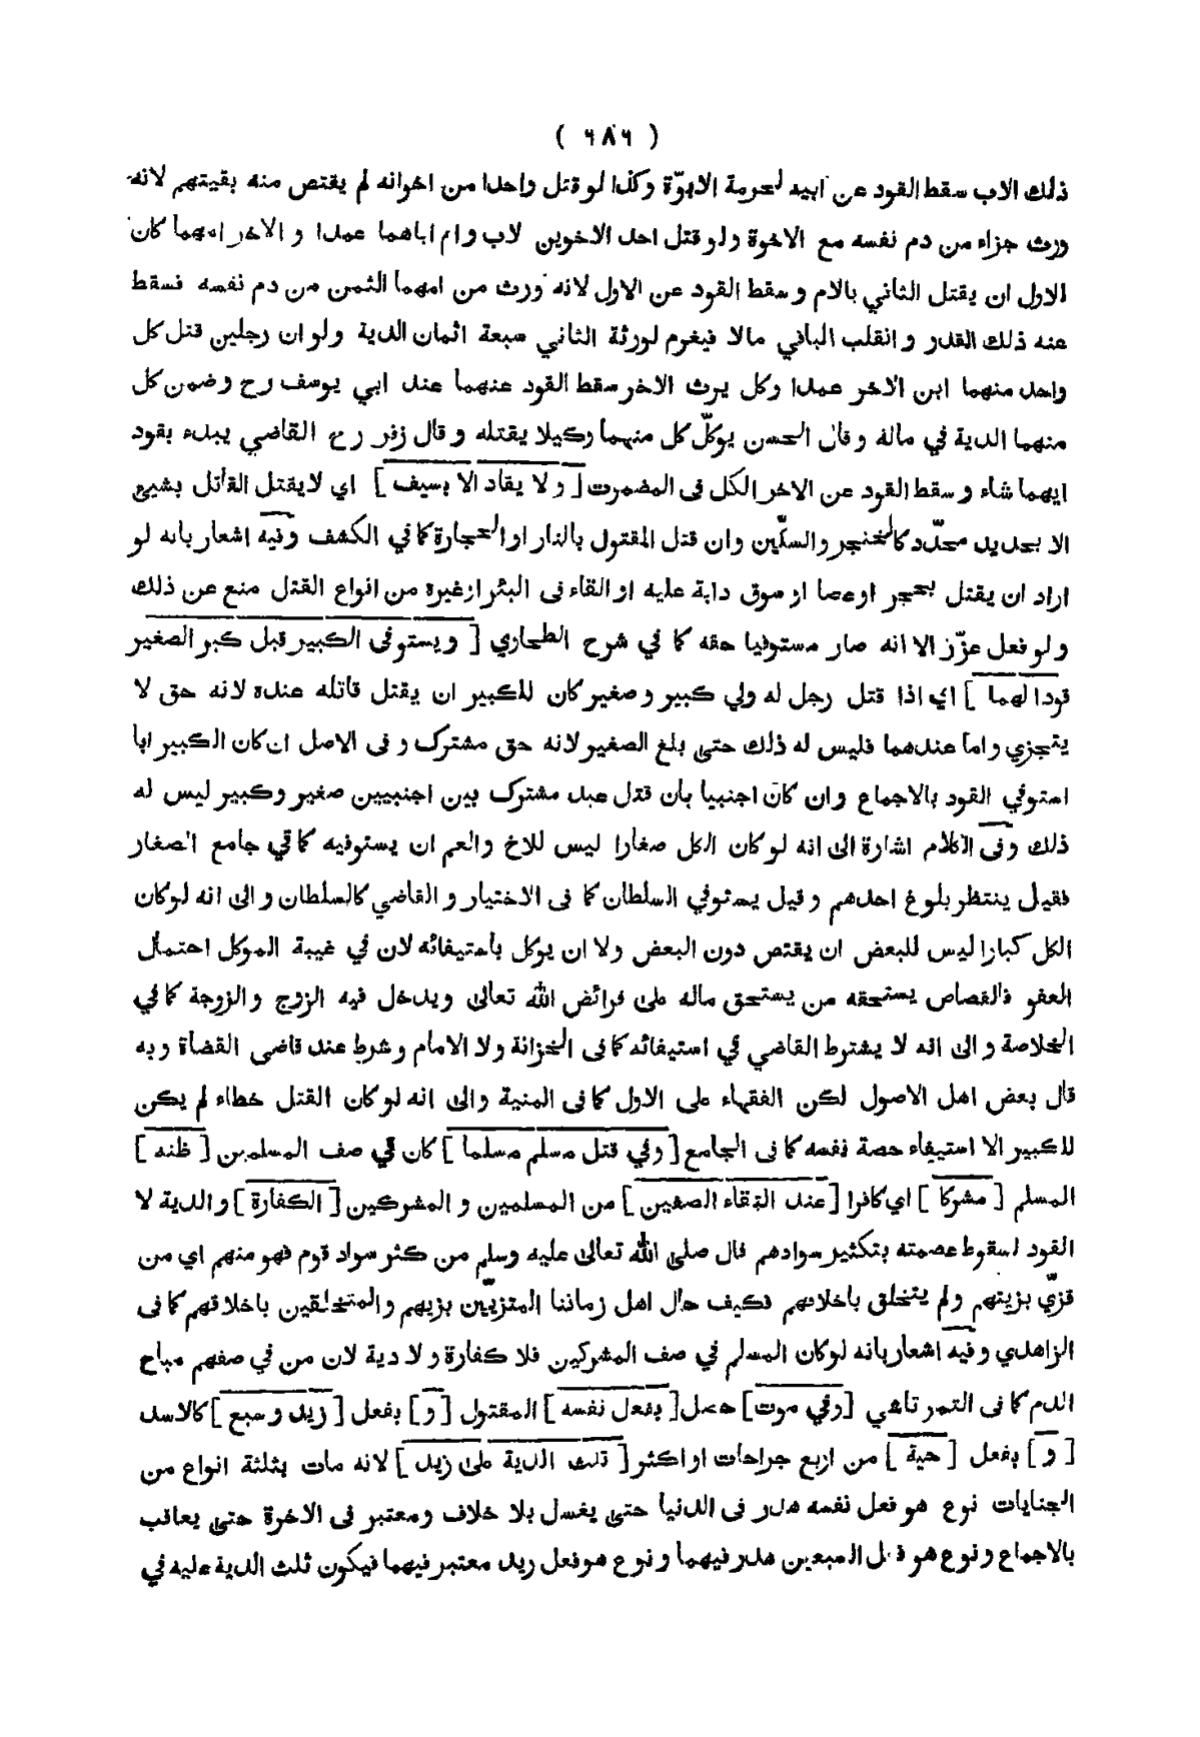 ( ٦٨٦ )
ذلك الاب سقط القود عن ابيه لحرمة الابوّة وكذا لو قتل واحدا من اخوانه لم يقتص منه بقيتهم لانه
ورث جزاء من دم نفسه مع الاخوة ولو قتل احد الاخوين لاب وام اباهما عمدا و الاخر امهما كان
الاول ان يقتل الثاني بالام و سقط القود عن الاول لانه ورث من امهما الثمن من دم نفسه فسقط
عنه ذلك القدر و انقلب الباقي مالا فيغرم لورثة الثاني سبعة اثمان الدية ولو ان رجلين قتل كل
واحد منهما ابن الاخر عمدا وكل يرث الاخر سقط القود عنهما عند ابي يوسف رح وضمن كل
منهما الدية في ماله وقال الحسن يوكّل كل منهما وكيلا يقتله و قال زفر رح القاضي يبدء بقود
ايهما شاء و سقط القود عن الاخر الكل فى المضمرت [ و لا يقاد الا بسيف ] اي لا يقتل القاتل بشيئ
الا بحديد محدّد كالخنجر والسكّين وان قتل المقتول بالنار او الحجارة كما في الكشف وفيه اشعار بانه لو
اراد ان يقتل بحجر او عصا او سوق دابة عليه او القاء فى البئر او غيره من انواع القتل منع عن ذلك
و لو فعل عزّر الا انه صار مستوفيا حقه كما في شرح الطحاوي [ و يستوفى الكبير قبل كبر الصغير
قودا لهما ] اي اذا قتل رجل له ولي كبير و صغير كان للكبير ان يقتل قاتله عنده لانه حق لا
يتجزي و اما عندهما فليس له ذلك حتى بلغ الصغير لانه حق مشترك و فى الاصل ان كان الكبير ابا
استوفي القود بالاجماع وان كان اجنبيا بان قتل عبد مشترك بين اجنبيين صغير وكبير ليس له
ذلك وفى الكلام اشارة الى انه لو كان الكل صغارا ليس للاخ والعم ان يستوفيه كما في جامع الصغار
فقيل ينتظر بلوغ احدهم و قيل يستوفي السلطان كما فى الاختيار و القاضي كالسلطان و الى انه لو كان
الكل كبارا ليس للبعض ان يقتص دون البعض ولا ان يوكل باستيفائه لان في غيبة الموكل احتمال
العفو فالقصاص يستحقه من يستحق ماله على فرائض الله تعالى ويدخل فيه الزوج والزوجة كما في
الخلاصة و الى انه لا يشترط القاضي في استيفائه كما فى الخزانة ولا الامام و شرط عند قاضى القضاة و به
قال بعض اهل الاصول لكن الفقهاء على الاول كما فى المنية والى انه لو كان القتل خطاء لم يكن
للكبير الا استيفاء حصة نفسه كما فى الجامع [ وفي قتل مسلم مسلما ] كان في صف المسلمين [ ظنه ]
المسلم [ مشركا ] اي كافرا [ عند التقاء الصفين ] من المسلمين و المشركين [ الكفارة ] و الدية لا
القود لسقوط عصمته بتكثير سوادهم قال صلى الله تعالى عليه وسلم من كثر سواد قوم فهو منهم اي من
تزيّ بزيتهم ولم يتخلق باخلاقهم فكيف حال اهل زماننا المتزيّين بزيهم والمتخلقين باخلاقهم كما فى
الزاهدي وفيه اشعار بانه لو كان المسلم في صف المشركين فلا كفارة و لا دية لان من في صفهم مباح
الدم كما فى التمرتاشي [ وفي موت ] حصل [ بفعل نفسه ] المقتول [ و ] بفعل [ زيد و سبع ] كالاسد
[ و ] بفعل [ حية ] من اربع جراحات او اكثر [ ثلث الدية على زيد ] لانه مات بثلثة انواع من
الجنايات نوع هو فعل نفسه هدر فى الدنيا حتى يغسل بلا خلاف ومعتبر فى الاخرة حتى يعاقب
بالاجماع و نوع هو فعل السبعين هدر فيهما و نوع هو فعل زيد معتبر فيهما فيكون ثلث الدية عليه في